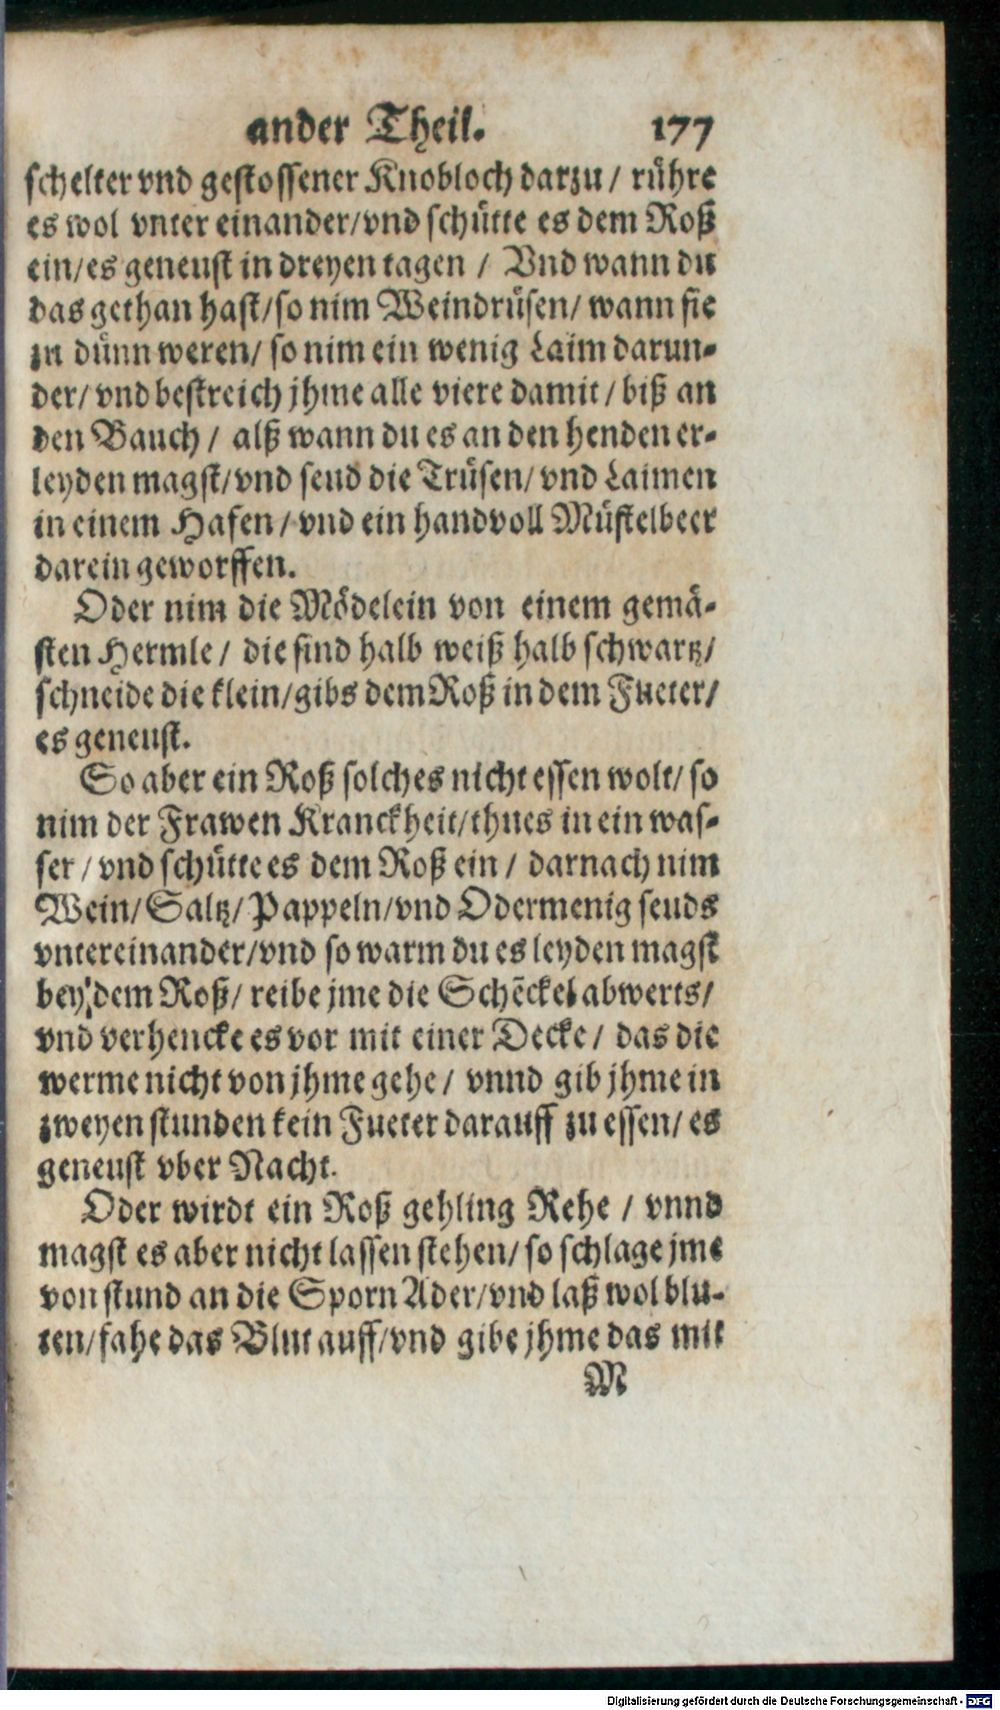 ander Theil. 177
schelter vnd gestossener Knobloch darzu / rühre
es wol vnter einander/vnd schütte es dem Roß
ein/es geneust in dreyen tagen / Vnd wann du
das gethan hast/so nim Weindrüsen/ wann sie
zu dünn weren/ so nim ein wenig Laim darun-
der/ vnd bestreich jhme alle viere damit / biß an
den Bauch / alß wann du es an den henden er-
leyden magst/vnd seud die Trüsen/ vnd Laimen
in einem Hafen /vnd ein handvoll Müstelbeer
darein geworffen.
Oder nim die Mödelein von einem gemä-
sten Hermle / die sind halb weiß halb schwartz/
schneide die klein/gibs dem Roß in dem Fueter/
es geneust.
So aber ein Roß solches nicht essen wolt/ so
nim der Frawen Kranckheit/thues in ein was-
ser / vnd schütte es dem Roß ein / darnach nim
Wein/Saltz/Pappeln/vnd Odermenig seuds
vntereinander/vnd so warm du es leyden magst
bey dem Roß/ reibe jme die Schēckel abwerts/
vnd verhencke es vor mit einer Decke / das die
werme nicht von jhme gehe / vnnd gib jhme in
zweyen stunden kein Fueter darauff zu essen/ es
geneust vber Nacht.
Oder wirdt ein Roß gehling Rehe / vnnd
magst es aber nicht lassen stehen/ so schlage jme
von stund an die Sporn Ader/vnd laß wol blu-
ten/fahe das Blut auff/vnd gibe jhme das mit
M
Digitalisierung gefördert durch die Deutsche Forschungsgemeinschaft - DFG